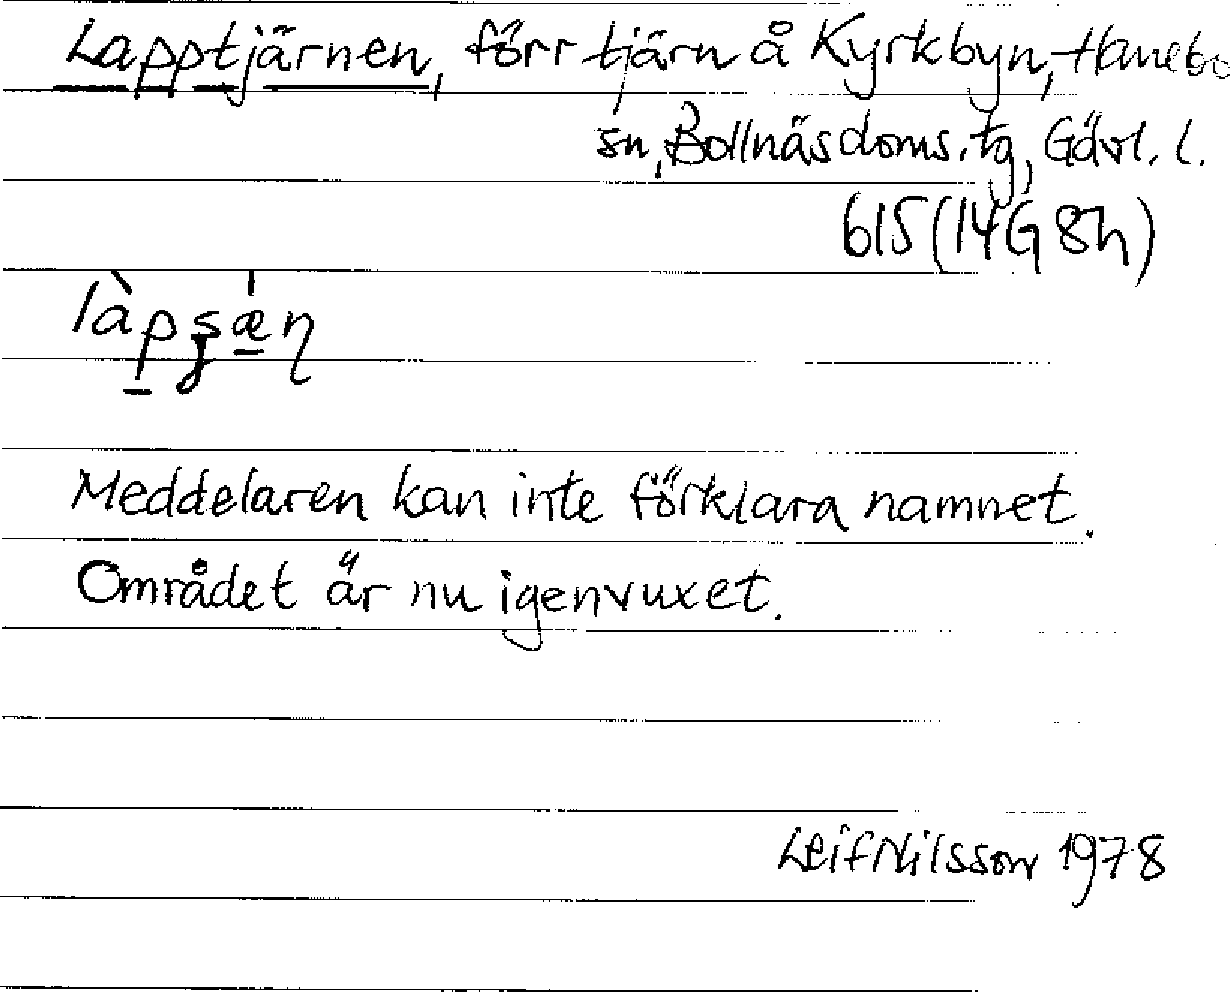 Lapptjärnen, förr tjärn å Kyrkbyn, Hanebo
sn, Bollnäs doms. tg, Gävl. l.
615 (14G 8h)
Meddelaren kan inte förklara namnet.
Området är nu igenvuxet.
Leif Nilsson 1978